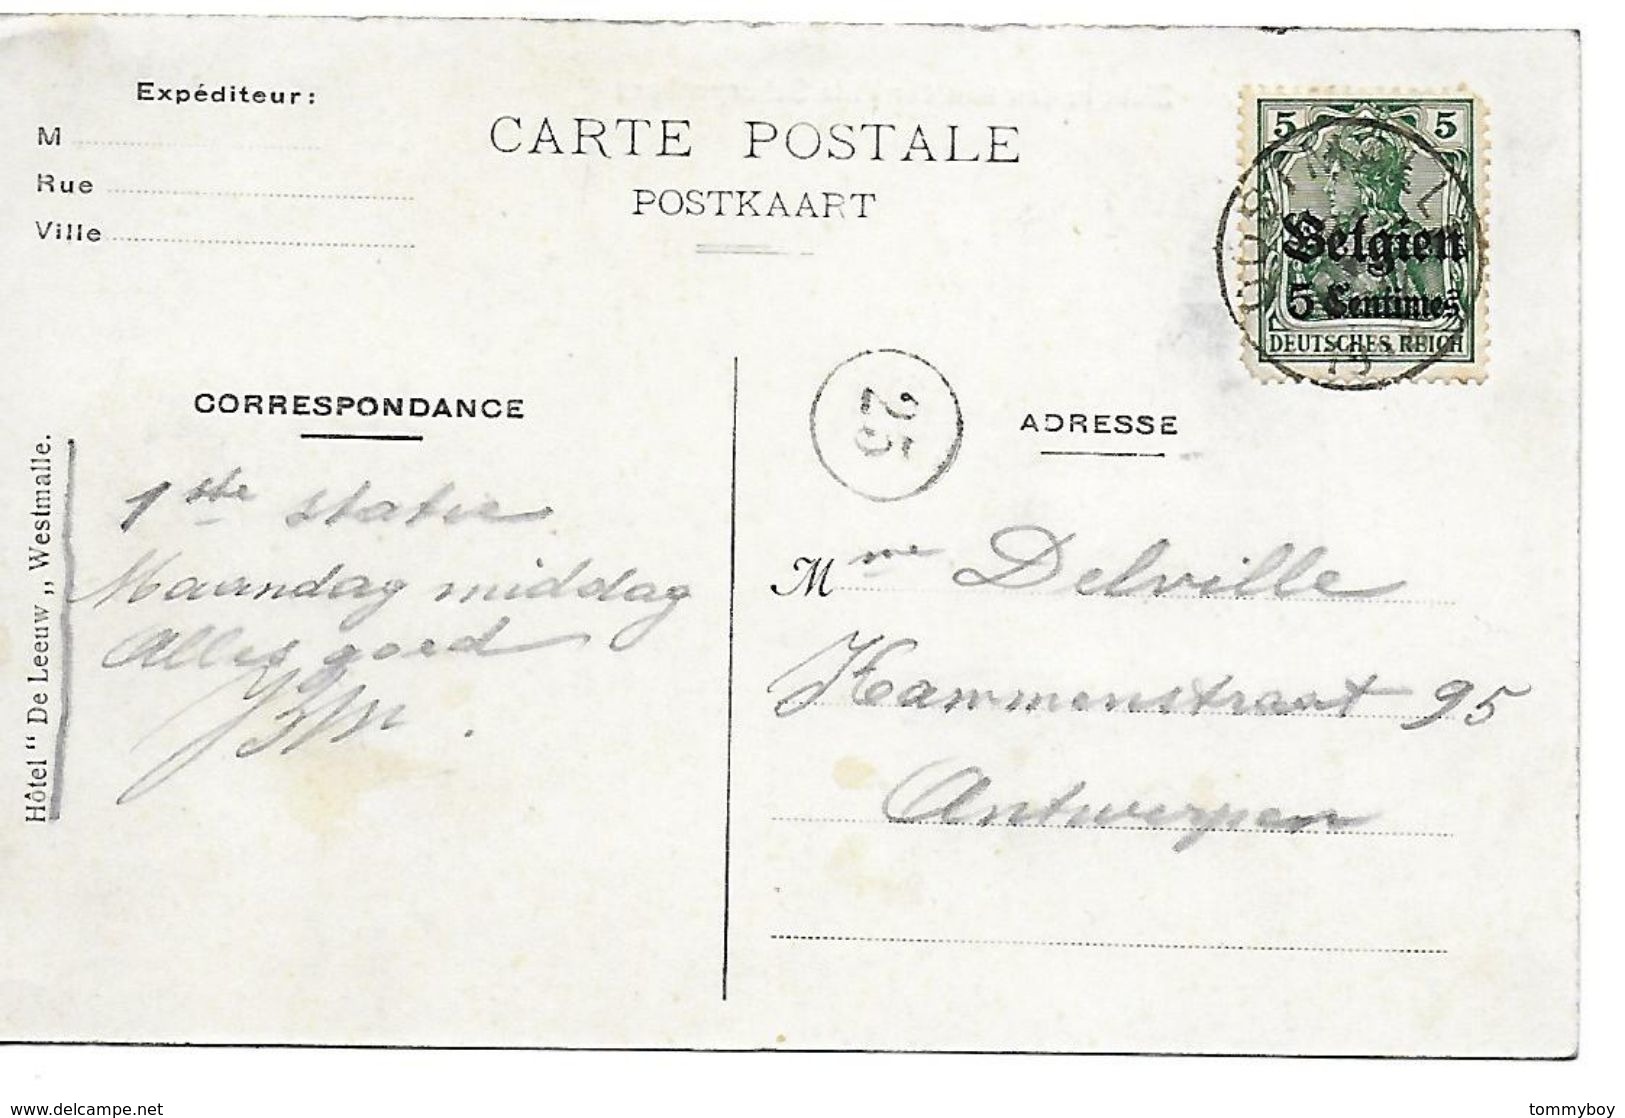 Expéditeur:
M
Rue
Ville
CARTE POSTALE
POSTKAART
5 5
Belgien
5 Centimes
DEUTSCHES REICH
25
CORRESPONDANCE
ADRESSE
Hôtel “ De Leeuw „ Westmalle.
1ste statie
Maandag middag
Alles goed
Mme Delville
Kammenstraat 95
Antwerpen
www.delcampe.net
tommyboy